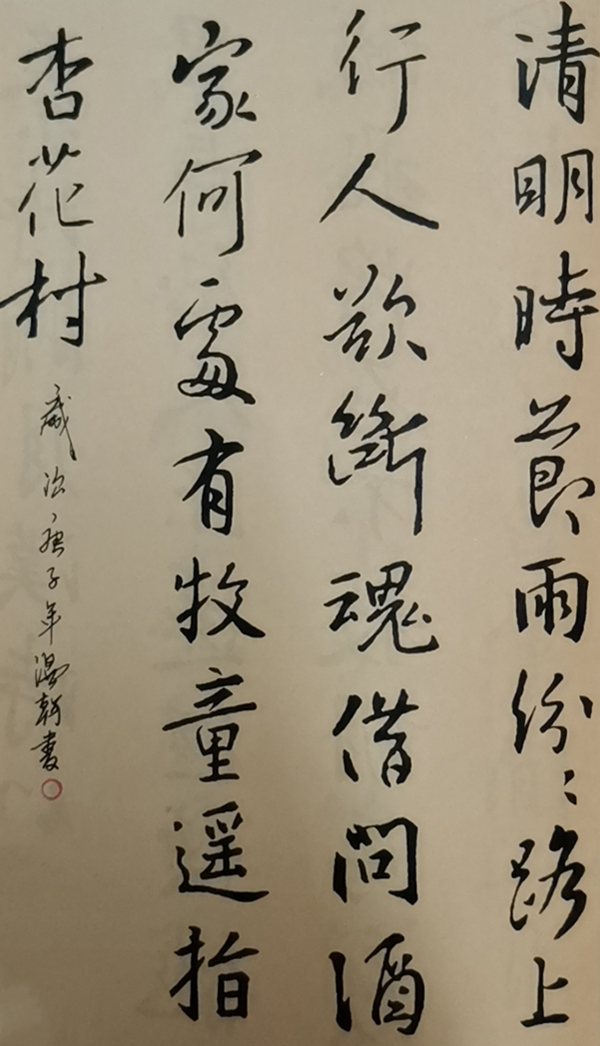 清明時節雨紛〻路上
行人欲斷魂借問酒
家何處有牧童遥指
杏花村
歲次庚子年湯軒書